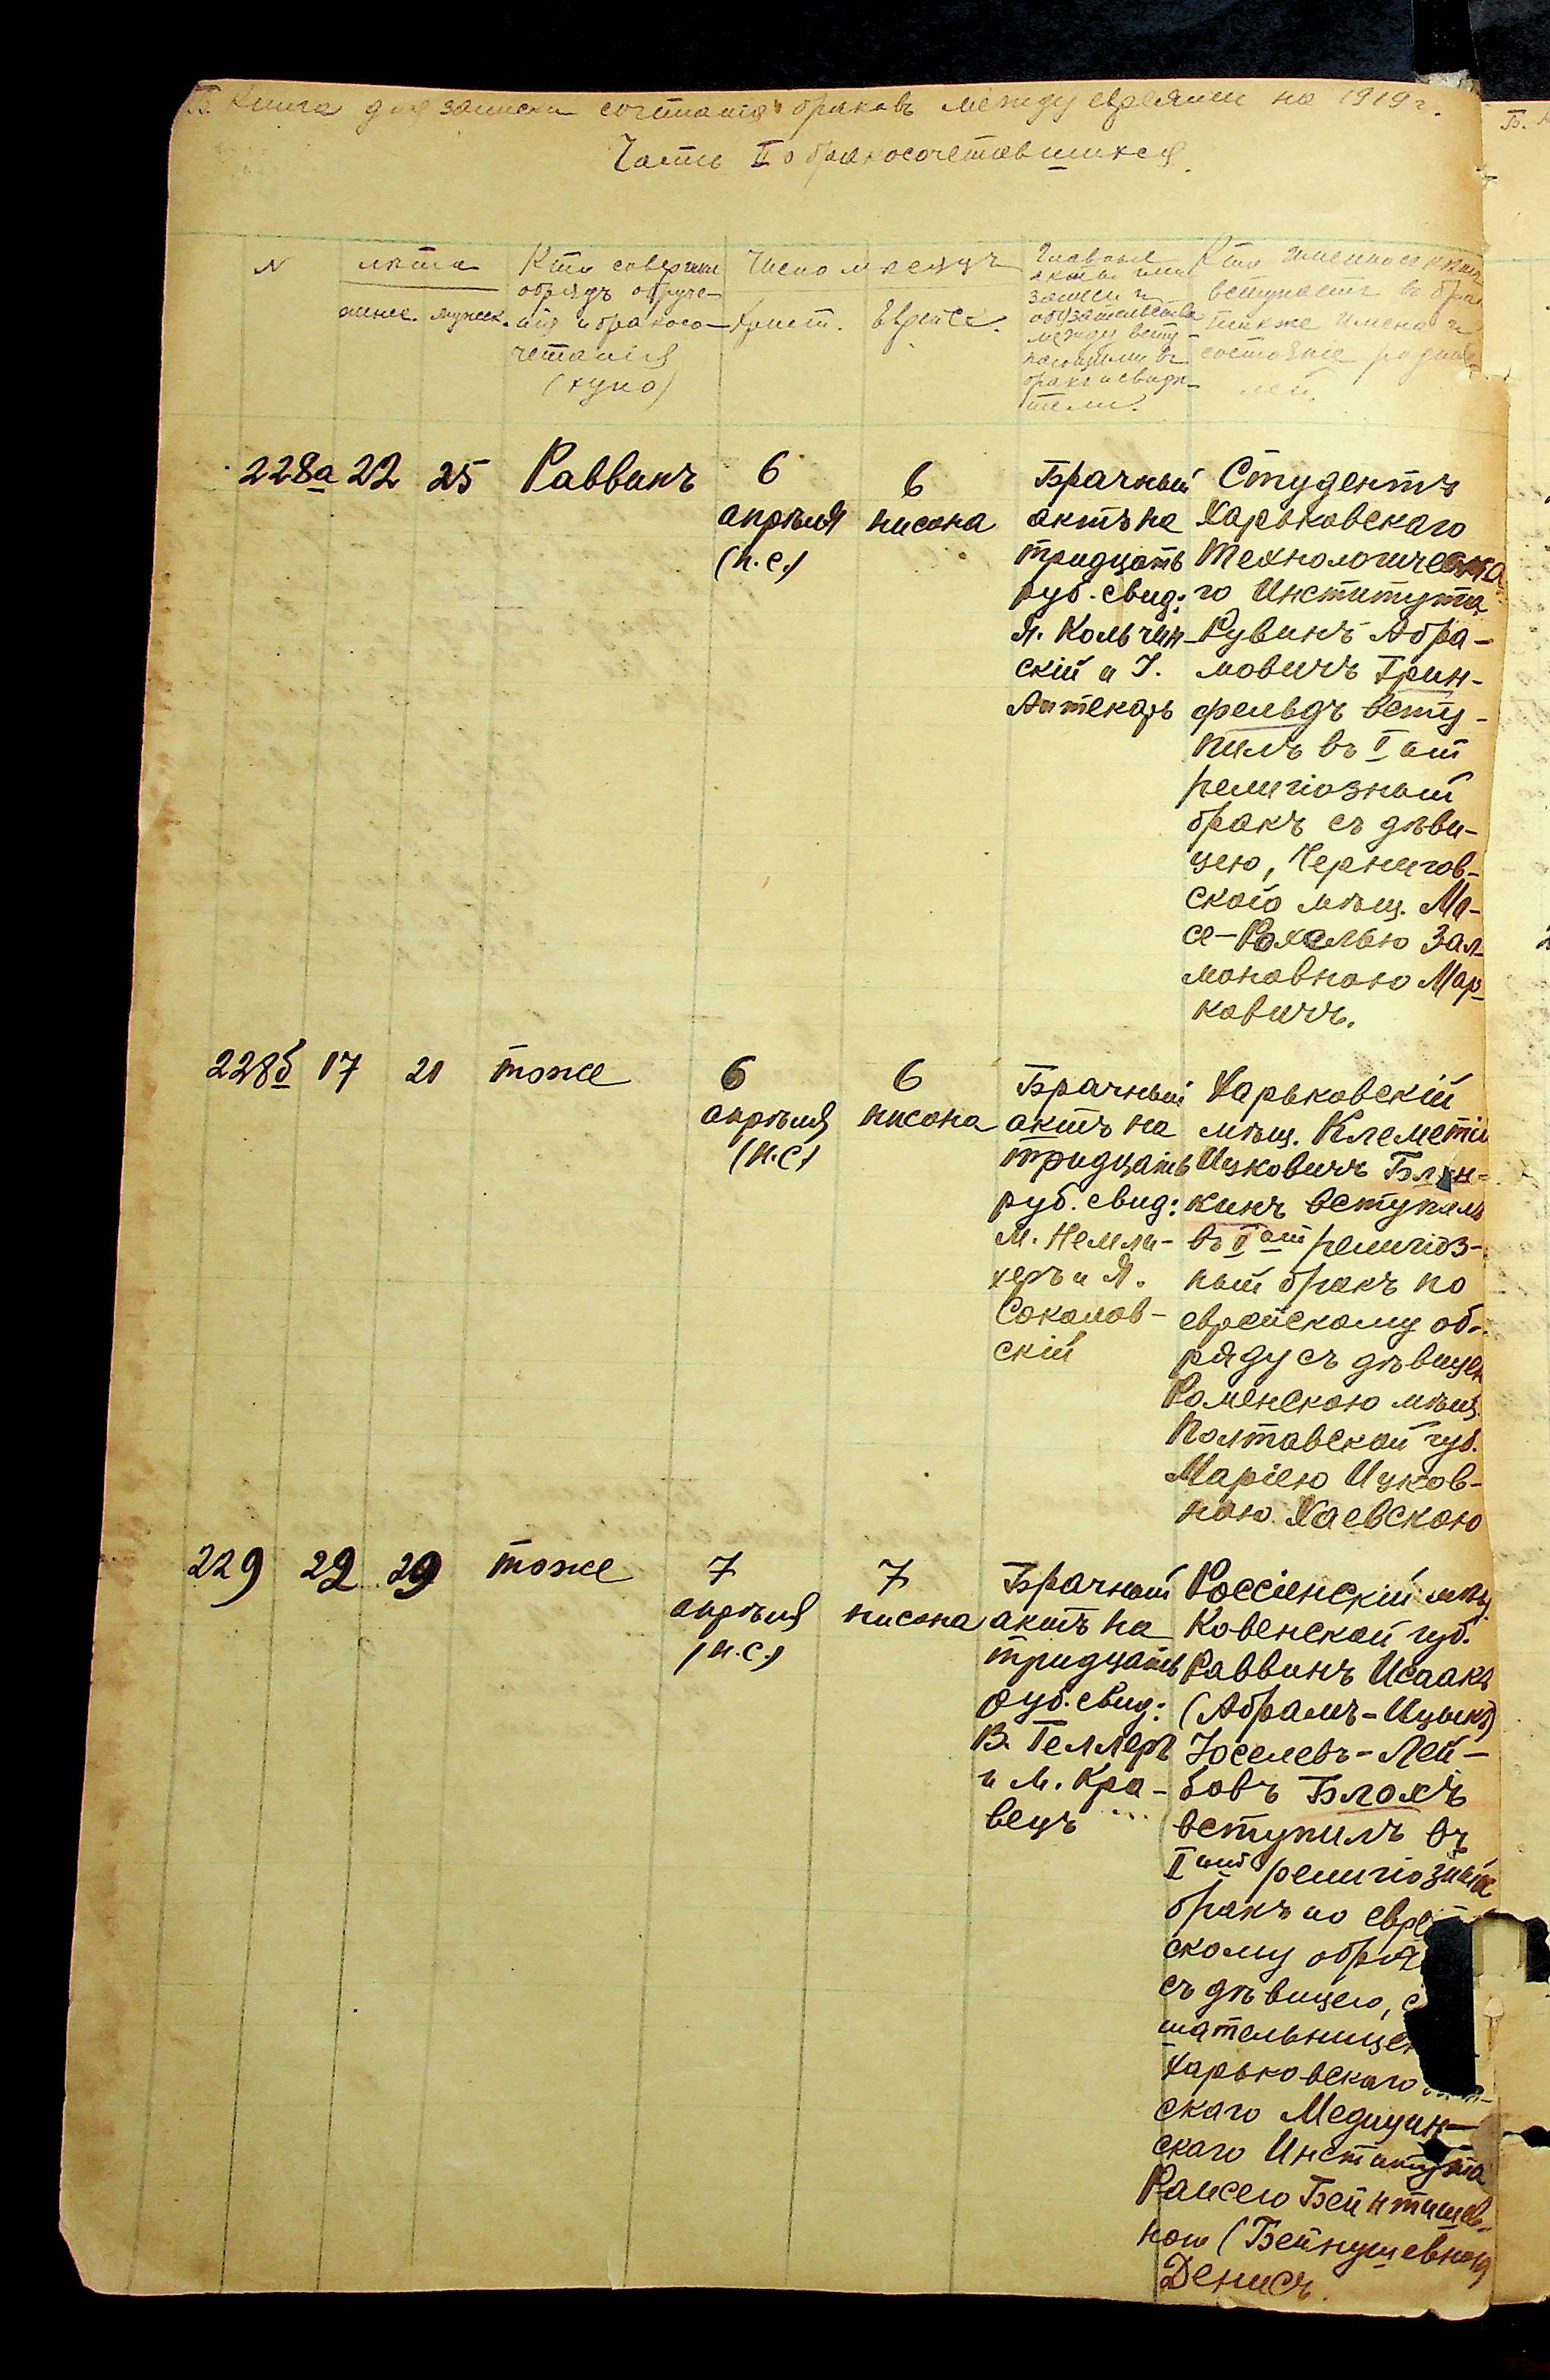 Б. Книга для записки сочетанія браковъ между евреями на 1919 г.
Часть II о бракосочетавшихся.
N
лѣта
женск. мужск.
Кто совершал
обрядъ обруче-
нія и бракосо-
четанія
(хупо)
Число и мѣсяцъ
Христ. Еврейск.
Главные
акты или
записи и
обязательства
между всту-
пающими въ
бракъ и свидѣ-
тели.
Кто именно съ кѣмъ
вступаетъ въ бракъ
также имена и
состояніе родите-
лей.
228а 22 25 Раввинъ
6
апрѣля
(н.с.)
6
нисона
Брачный
актъ на
тридцать
руб. свид:
Я. Кольчин-
скій и І.
Аптекарь
Студентъ
Харьковскаго
Технологическа
го Института
Рувинъ Абра-
мовичъ Грин-
фельдъ всту-
пилъ въ Iый
религіозный
бракъ съ дѣви-
цею, Чернигов-
ского мѣщ. Ма-
се-Рохелью Зал-
мановною Мар-
ковичъ.
228б 17 21 тоже
6
апрѣля
(н.с)
6
нисона
Брачный
актъ на
тридцать
руб. свид:
М. Немли-
херъ и Я.
Соколов-
скій
Харьковскій
мѣщ. Клеметій
Ицковичъ Блин-
кинъ вступилъ
въ Iый религіоз-
ный бракъ по
еврейскому об-
ряду съ дѣвицею
Роменскою мѣщ.
Полтавской губ.
Маріею Ицков-
ною Хаевскою
229 22 29 тоже
7
апрѣля
(н.с.)
7
нисона
Брачный
актъ на
тридцать
руб. свид:
В. Геллеръ
и М. Кра-
вецъ
Россіенскій мѣщ.
Ковенской губ.
Раввинъ Исаакъ
(Абрамъ-Ицыкъ)
Іоселевъ-Лей-
бовъ Блохъ
вступилъ въ
Iый религіозный
бракъ по евре
скому обря
съ дѣвицею, с
шательницею
Харьковскаго
скаго Медицин-
скаго Института
Раисею Бейнтишев-
ною (Бейнушевною)
Денисъ.